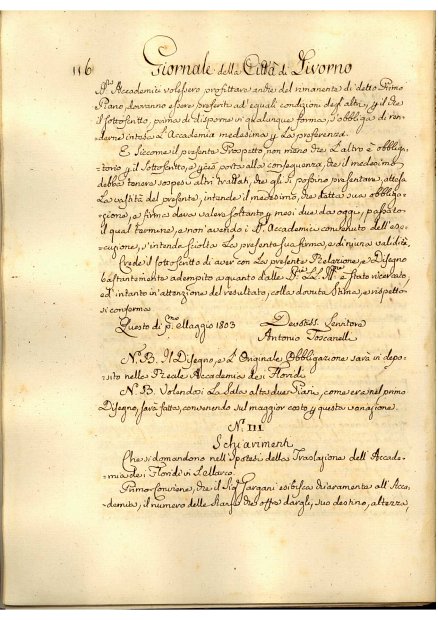 116 Giornale della Città di Livorno
Accademici volessero profittare anche del rimanente di detto Primo
Piano, dovranno essere preferiti ad eguali condizioni degl'altri, y il che
il sottoscritto, prima di disporne in qualunque forma, s'obbliga di ren-
derne intesa L'Accademia medesima y La preferenza.
E siccome il presente Prospetto non meno che L'altro è obbliga-
torio y il Sottoscritto, e porta alla conseguenza, che il medesimo
debba tenere sospesi altri trattati, che gli si possino presentare, attesa
La vastità del presente, intende il medesimo, che detta sua obbliga-
zione, e firma deva valere soltanto y mesi due da oggi, passato
il qual termine, e non avendo i Accademici convenuto dell'ese-
cuzione, s'intende sciolta La presente sua firma, e di niuna validità.
Crede il sottoscritto di aver con La presente Relazione, e Disegno
bastantemente adempito a quanto dalle è stato ricercato,
ed intanto in attenzione del resultato, colla dovuta Stima, e rispetto
si conferma.
Questo di pmo Maggio 1803 Devotiss. Servitore
Antonio Toscanelli
N. B. Il Disegno, e L'Originale Obbligazione sarà in depo-
sito nella Reale Accademia dei Floridi
N. B. Volendosi La Sala alta due Piani, come era nel primo
Disegno, sarà fatta, convenendo sul maggior costo y questa variazione.
N. III.
Schiarimenti
Che si domandano nell'ipotesi della Traslazione dell'Accade-
mia dei Floridi
Primo: Conviene, che il Sigr Gargani esibisca chiaramente all'Acca-
demia, il numero delle Stanze che offre dargli, suo destino, altezza,